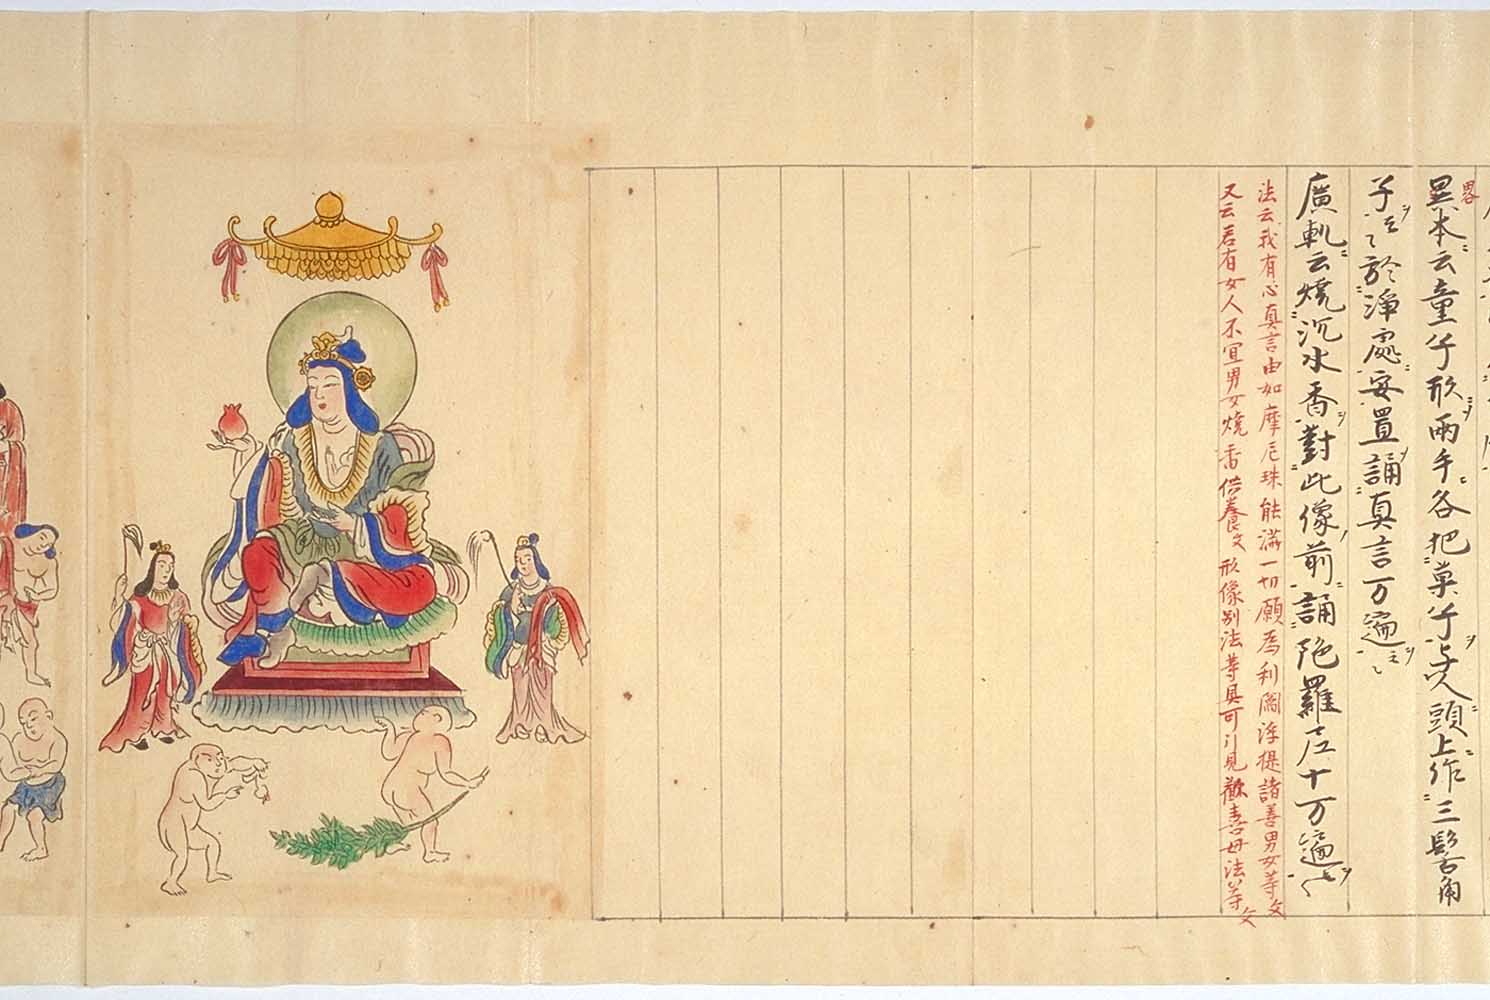 畧
異本云童子形兩手各把菓子与人頭上作三髻角
子云〻於淨處安置誦真言万遍云〻
廣軌云燒沉水香對此像前誦陀羅尼十万遍
法云我有心真言由如摩尼珠能滿一切願為利閻浮提諸善男女等文
又云若有女人不宜男女燒香供養文 形像別法等具可引見歡喜母法等文